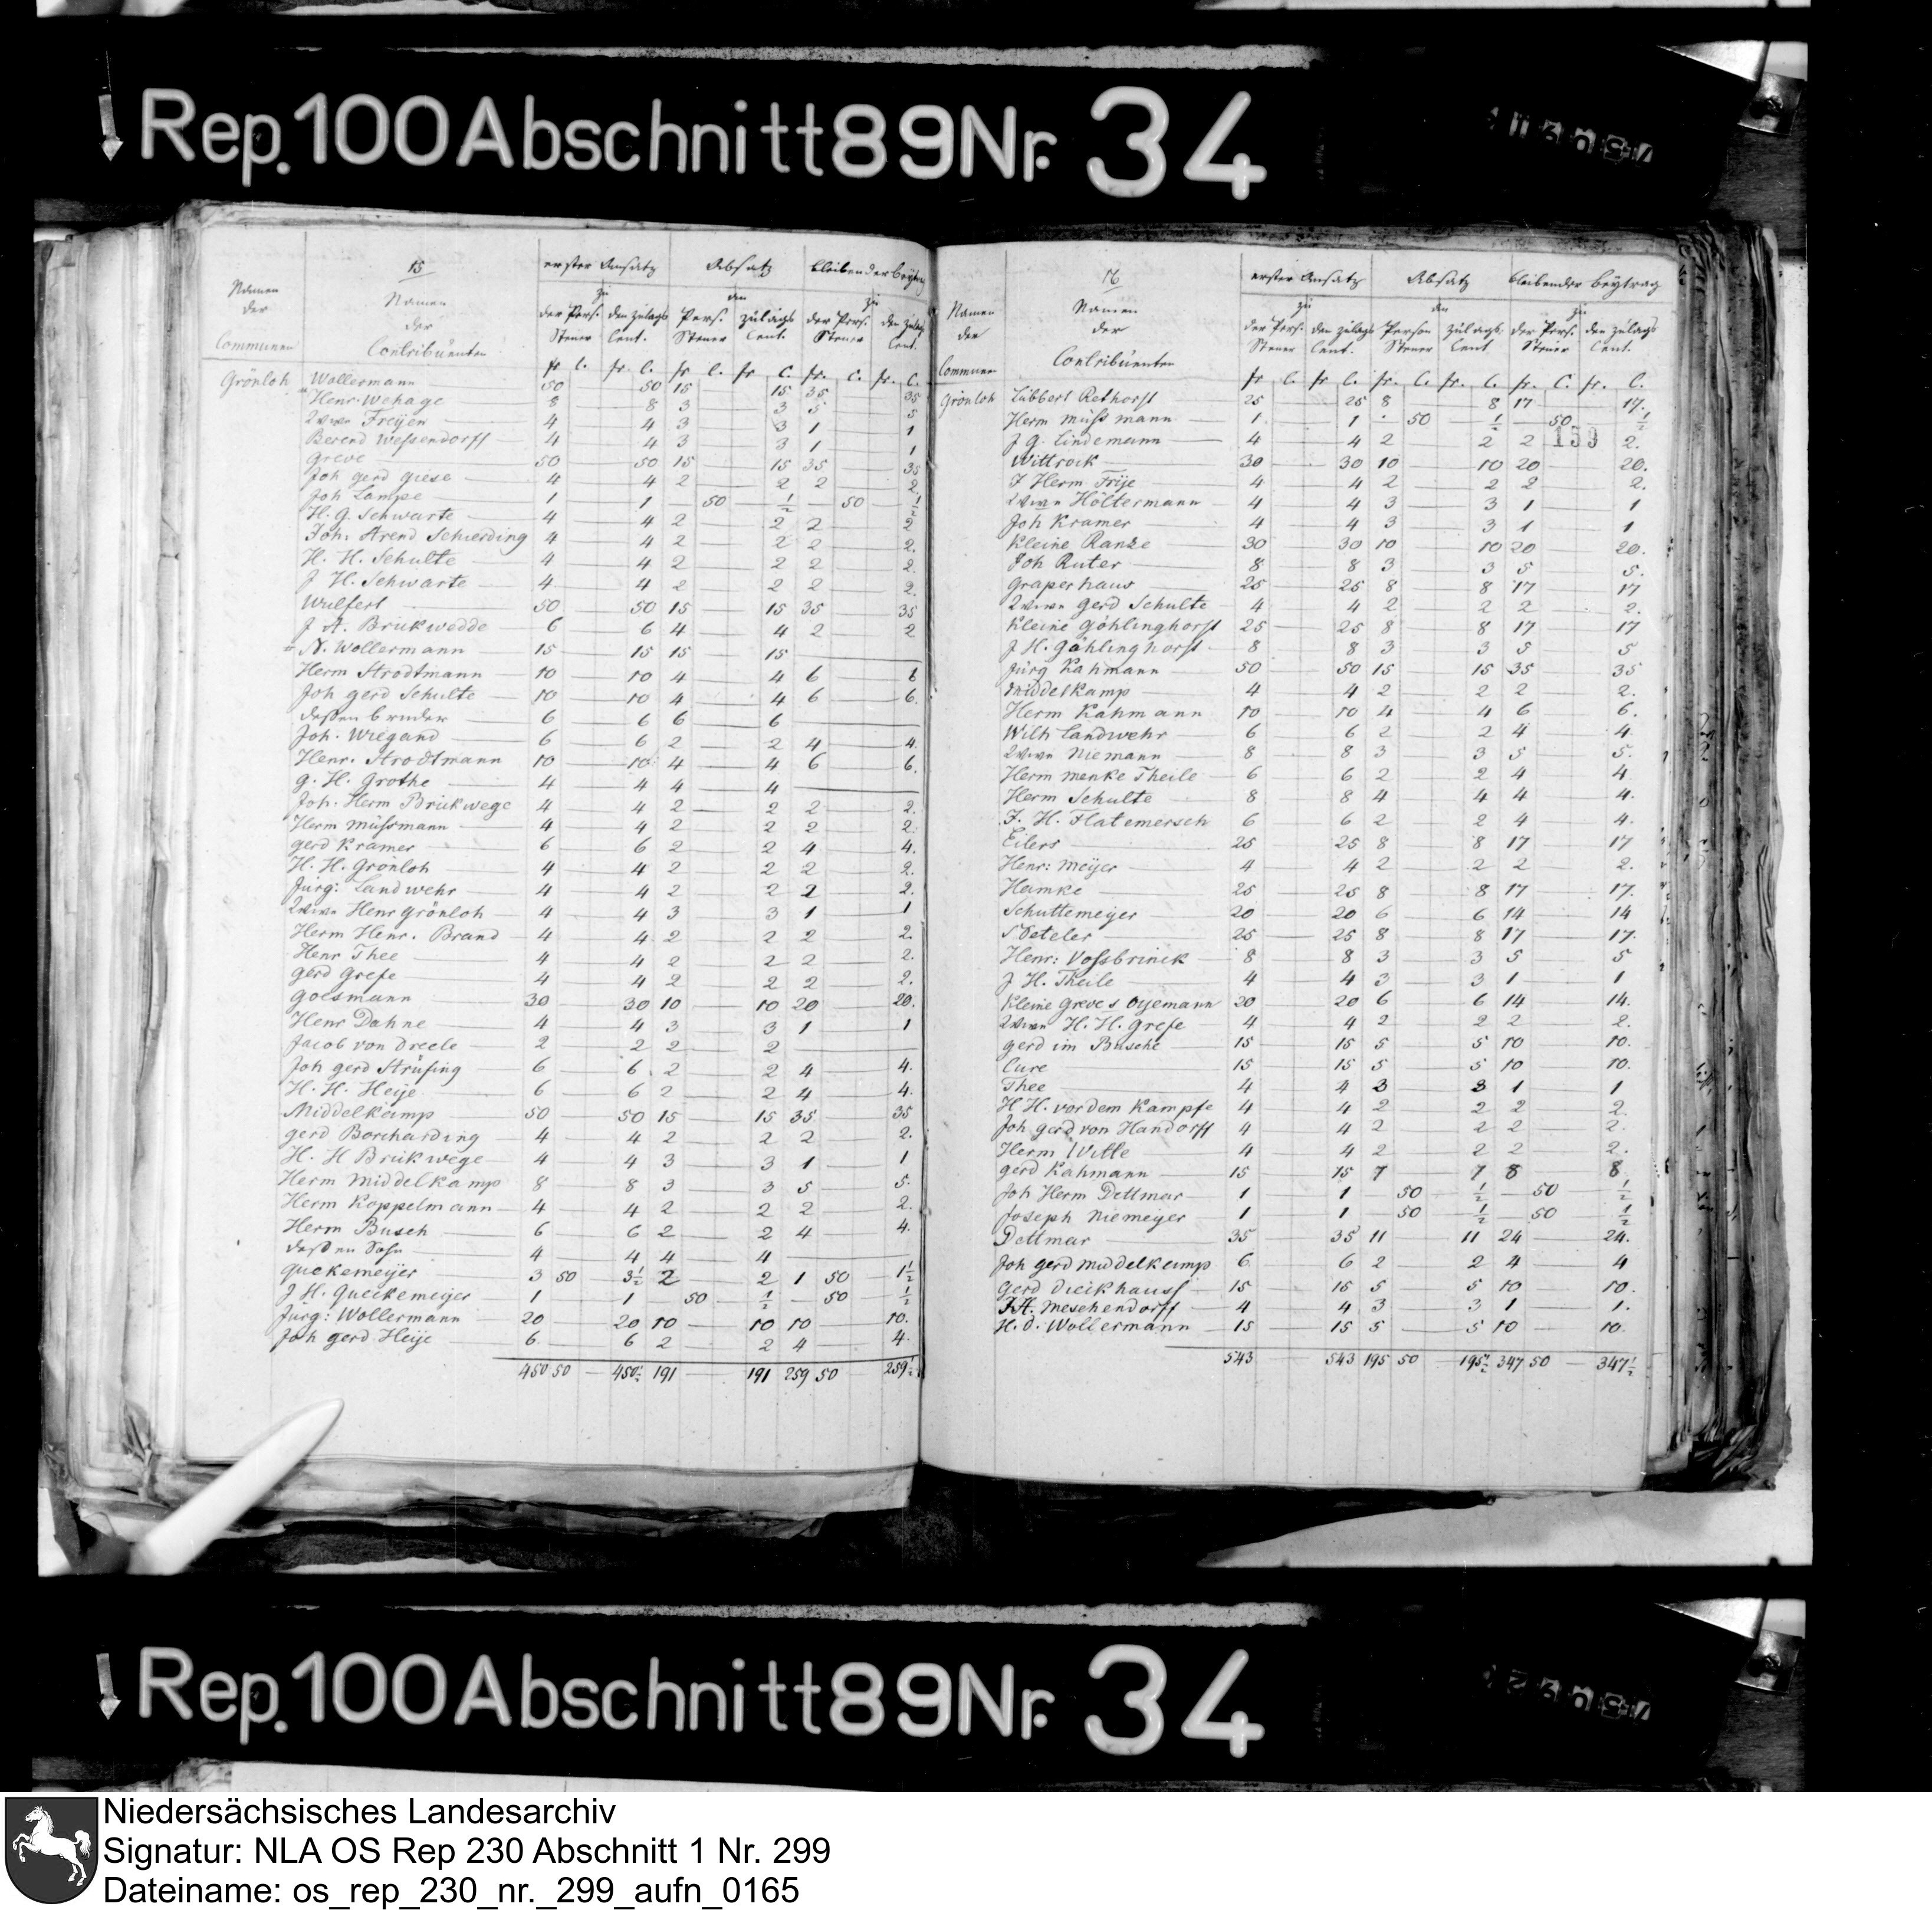 Rep. 100 Abschnitt 89 Nr. 34
15
erster Ansatz Absatz bleibender Beytrag
Namen der Communen
Namen der Contribuenten
zu der Pers. Steuer den Zulags Cent.
den Pers. Steuer Zulags Cent.
zu der Pers. Steuer den Zulags Cent.
fr c. fr. c. fr c. fr c. fr. c. fr. c.
Grönloh Wollermann 50 50 15 15 35 35
Henr. Wehage 8 8 3 3 5 5
Wwe Freijen 4 4 3 3 1 1
Berend Wessendorff 4 4 3 3 1 1
Greve 50 50 15 15 35 35
Joh gerd giese 4 4 2 2 2 2
Joh Lampe 1 1 50 ½ 50 ½
H. G. Schwarte 4 4 2 2 2 2
Joh. Arend Schierding 4 4 2 2 2 2.
H. H. Schulte 4 4 2 2 2 2.
J H. Schwarte 4 4 2 2 2 2.
Wulfert 50 50 15 15 35 35
J A. Brükwedde 6 6 4 4 2 2
N. Wollermann 15 15 15 15
Herm Strodtmann 10 10 4 4 6 6
Joh gerd Schulte 10 10 4 4 6 6.
dessen bruder 6 6 6 6
Joh. Wiegand 6 6 2 2 4 4.
Henr. Strodtmann 10 10 4 4 6 6.
g. H. Grothe 4 4 4 4
Joh. Herm Brükwege 4 4 2 2 2 2.
Herm müssmann 4 4 2 2 2 2
gerd Kramer 6 6 2 2 4 4.
H. H. Grönloh 4 4 2 2 2 2.
Jürg: Landwehr 4 4 2 2 2 2.
Wwe Henr grönloh 4 4 3 3 1 1
Herm Henr. Brand 4 4 2 2 2 2.
Henr Thee 4 4 2 2 2 2.
gerd grefe 4 4 2 2 2 2.
goesmann 30 30 10 10 20 20.
Henr Dahne 4 4 3 3 1 1
Jacob von dreele 2 2 2 2
Joh gerd Strüfing 6 6 2 2 4 4.
H. H. Heije 6 6 2 2 4 4.
Middelkamp 50 50 15 15 35 35
gerd Borcharding 4 4 2 2 2 2.
H. H Brükwege 4 4 3 3 1 1
Herm middelkamp 8 8 3 3 5 5.
Herm Koppelmann 4 4 2 2 2 2.
Herm Busch 6 6 2 2 4 4.
dessen Sohn 4 4 4 4
quekemeijer 3 50 3½ 2 2 1 50 1½
J H. queckemeijer 1 1 50 ½ 50 ½
Jürg: Wollermann 20 20 10 10 10 10.
Joh gerd Heije 6 6 2 2 4 4
450 50 450½ 191 191 259 50 259½
16
erster Ansatz Absatz bleibender Beytrag
Namen der Communen
Namen der Contribuenten
zu der Pers. Steuer den Zulags Cent.
den Person Steuer Zulags. Cent
zu der Pers. Steuer den Zulags Cent.
fr c. fr c. fr. c. fr. c. fr. c. fr. c.
Grönloh Lübbert Rethorst 25 25 8 8 17 17.
Herm müss mann 1 1 50 ½ 50 ½
159
J g. Lindemann 4 4 2 2 2 2.
Wittrock 30 30 10 10 20 20.
J Herm Frije 4 4 2 2 2 2.
Wwe Höltermann 4 4 3 3 1 1
Joh Kramer 4 4 3 3 1 1
Kleine Ranze 30 30 10 10 20 20.
Joh Ruter 8 8 3 3 5 5.
graperhaus 25 25 8 8 17 17
Wwe gerd Schulte 4 4 2 2 2 2.
Kleine göhlinghorst 25 25 8 8 17 17
J H. göhlinghorst 8 8 3 3 5 5
Jürg Kahmann 50 50 15 15 35 35
middelkamp 4 4 2 2 2 2.
Herm Kahmann 10 10 4 4 6 6.
Wilh Landwehr 6 6 2 2 4 4.
Wwe Niemann 8 8 3 3 5 5.
Herm menke Theile 6 6 2 2 4 4.
Herm Schulte 8 8 4 4 4 4.
J. H. Flatemersch 6 6 2 2 4 4.
Eilers 25 25 8 8 17 17
Henr: meijer 4 4 2 2 2 2.
Hamke 25 25 8 8 17 17.
Schuttemeijer 20 20 6 6 14 14
Deteler 25 25 8 8 17 17.
Henr: Vossbrinck 8 8 3 3 5 5
J H. Theile 4 4 3 3 1 1
Kleine greve s oyemann 20 20 6 6 14 14.
Wwe H. H. grefe 4 4 2 2 2 2.
gerd im Busche 15 15 5 5 10 10.
Cure 15 15 5 5 10 10.
Thee 4 4 3 3 1 1
H H. vor dem Kampfe 4 4 2 2 2 2.
Joh gerd von Handorff 4 4 2 2 2 2.
Herm Witte 4 4 2 2 2 2.
gerd Kahmann 15 15 7 7 8 8
Joh Herm Dettmar 1 1 50 ½ 50 ½
Joseph Niemeijer 1 1 50 ½ 50 ½
Dettmar 35 35 11 11 24 24.
Joh gerd middelkamp 6 6 2 2 4 4
gerd dieckhauss 15 15 5 5 10 10.
J H. meschendorff 4 4 3 3 1 1.
H. d. Wollermann 15 15 5 5 10 10.
543 543 195 50 195½ 347 50 347½
Rep. 100 Abschnitt 89 Nr. 34
Niedersächsisches Landesarchiv
Signatur: NLA OS Rep 230 Abschnitt 1 Nr. 299
Dateiname: os_rep_230_nr._299_aufn_0165